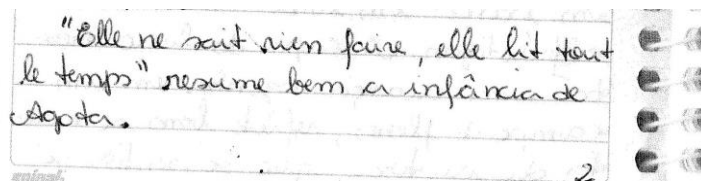 "Elle ne sait rien faire, elle lit tout
le temps" resume bem a infância de
Agota.
2
spiral